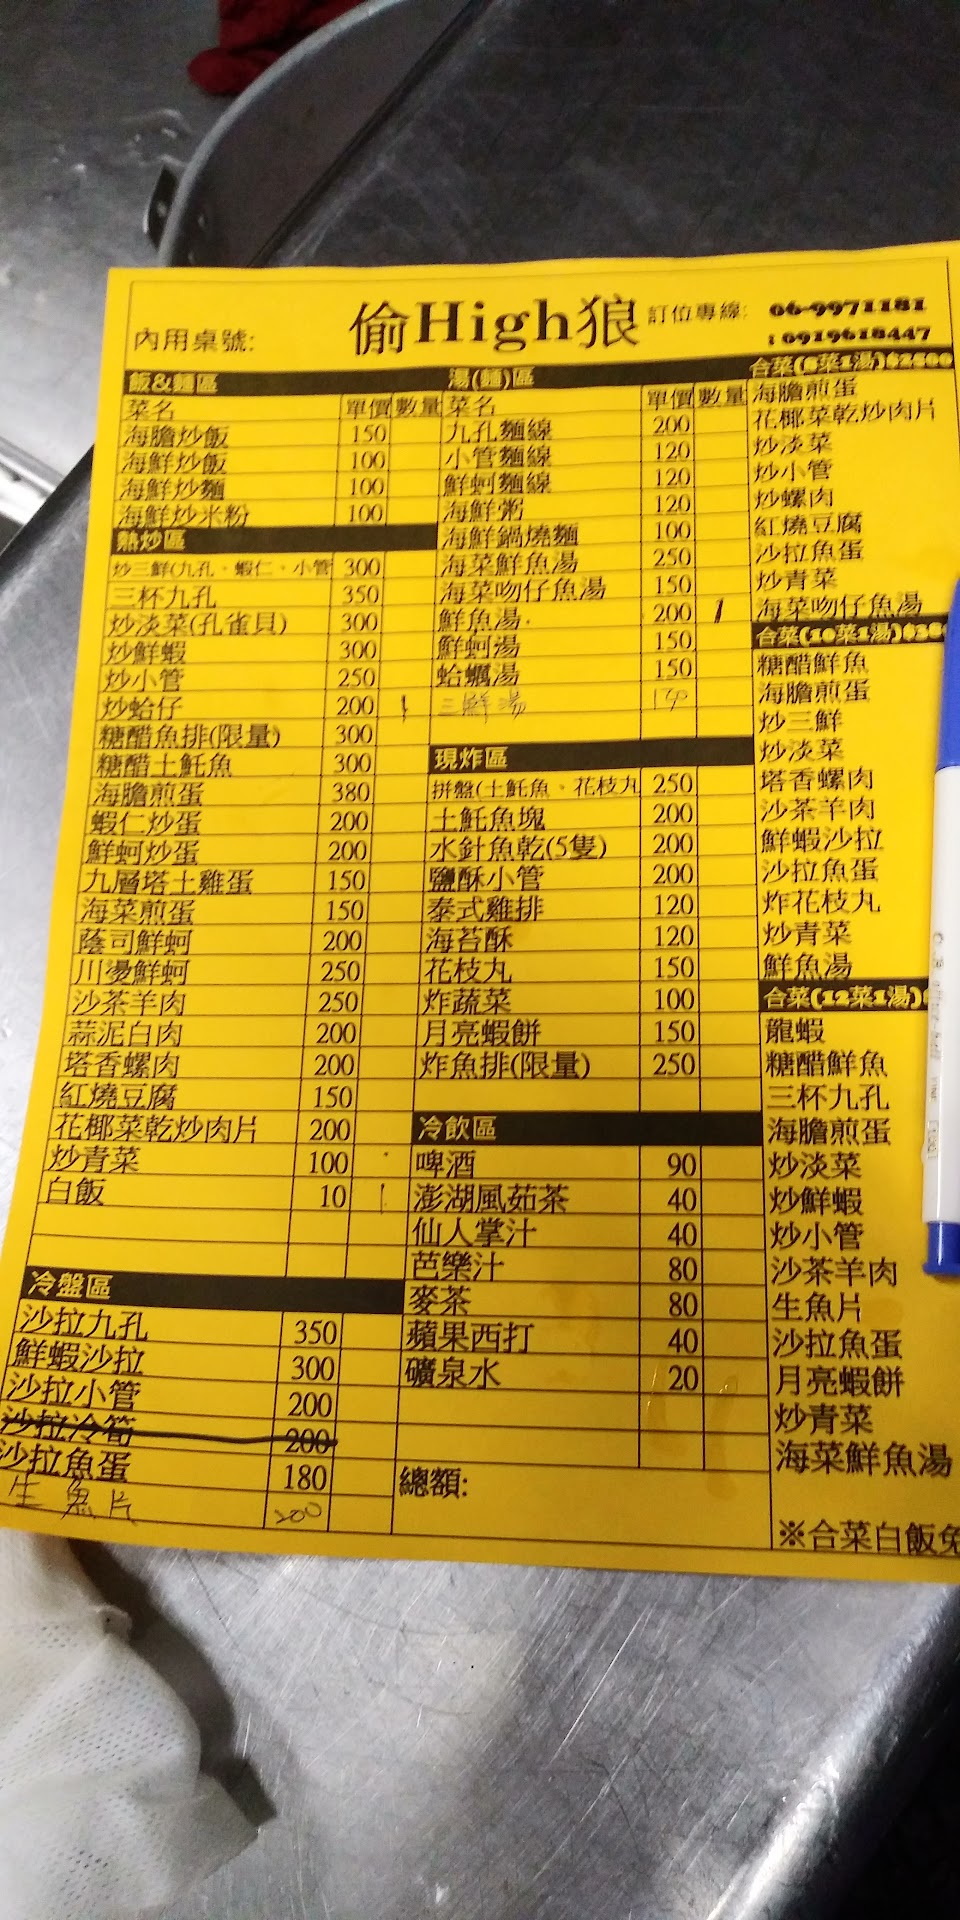 內用桌號:
偷High狼
訂位專線: 06-9971181
: 0919618447
飯&麵區
菜名 單價 數量
海膽炒飯 150
海鮮炒飯 100
海鮮炒麵 100
海鮮炒米粉 100
熱炒區
炒三鮮(九孔、蝦仁、小管 300
三杯九孔 350
炒淡菜(孔雀貝) 300
炒鮮蝦 300
炒小管 250
炒蛤仔 200 1
糖醋魚排(限量) 300
糖醋土魠魚 300
海膽煎蛋 380
蝦仁炒蛋 200
鮮蚵炒蛋 200
九層塔土雞蛋 150
海菜煎蛋 150
蔭司鮮蚵 200
川燙鮮蚵 250
沙茶羊肉 250
蒜泥白肉 200
塔香螺肉 200
紅燒豆腐 150
花椰菜乾炒肉片 200
炒青菜 100
白飯 10 1
冷盤區
沙拉九孔 350
鮮蝦沙拉 300
沙拉小管 200
沙拉冷筍 200
沙拉魚蛋 180
生魚片 200
湯(麵)區
菜名 單價 數量
九孔麵線 200
小管麵線 120
鮮蚵麵線 120
海鮮粥 120
海鮮鍋燒麵 100
海菜鮮魚湯 250
海菜吻仔魚湯 150
鮮魚湯 200 1
鮮蚵湯 150
蛤蠣湯 150
三鮮湯
現炸區
拼盤(土魠魚、花枝丸 250
土魠魚塊 200
水針魚乾(5隻) 200
鹽酥小管 200
泰式雞排 120
海苔酥 120
花枝丸 150
炸蔬菜 100
月亮蝦餅 150
炸魚排(限量) 250
冷飲區
啤酒 90
澎湖風茹茶 40
仙人掌汁 40
芭樂汁 80
麥茶 80
蘋果西打 40
礦泉水 20
總額:
合菜(8菜1湯)$2500
海膽煎蛋
花椰菜乾炒肉片
炒淡菜
炒小管
炒螺肉
紅燒豆腐
沙拉魚蛋
炒青菜
海菜吻仔魚湯
合菜(10菜1湯)$38
糖醋鮮魚
海膽煎蛋
炒三鮮
炒淡菜
塔香螺肉
沙茶羊肉
鮮蝦沙拉
沙拉魚蛋
炸花枝丸
炒青菜
鮮魚湯
合菜(12菜1湯)$
龍蝦
糖醋鮮魚
三杯九孔
海膽煎蛋
炒淡菜
炒鮮蝦
炒小管
沙茶羊肉
生魚片
沙拉魚蛋
月亮蝦餅
炒青菜
海菜鮮魚湯
※合菜白飯免